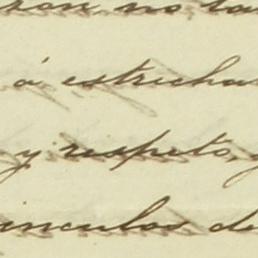 ron no ta
á estrecha
y respeto,
ínculos de